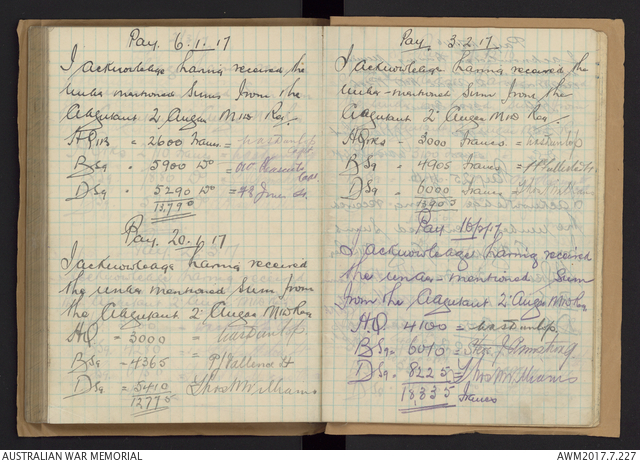 Pay. 6.1.17
I acknowledge having received the
under mentioned Sums from the
Adjutant 2 Anzac M'td Reg:-
HQrs = 2600 Francs =
B Sq " 5900 Do =
D Sq " 5290 Do =
13,790
Pay. 20.1.17
I acknowledge having received
the under mentioned Sum from
the Adjutant 2 Anzac M'td Reg
HQ = 3000 =
B Sq = 4365
D Sq = 5410 Thos W Williams
12775
Pay. 3.2.17
I acknowledge having received the
under-mentioned Sum from the
Adjutant 2 Anzac M'td Reg:-
HQrs - 3000 Francs =
B Sq " 4905 Francs =
D Sq " 6000 Francs Thos W Williams
13905
Pay. 16/2/17
I acknowledge having received
the under-mentioned Sum
from the Adjutant 2 Anzac M'td Reg
HQ. 4100 =
B Sq. 6010 = J. Armstrong
D Sq. 8225 = Thos W Williams
18,335 Francs
AUSTRALIAN WAR MEMORIAL
AWM2017.7.227